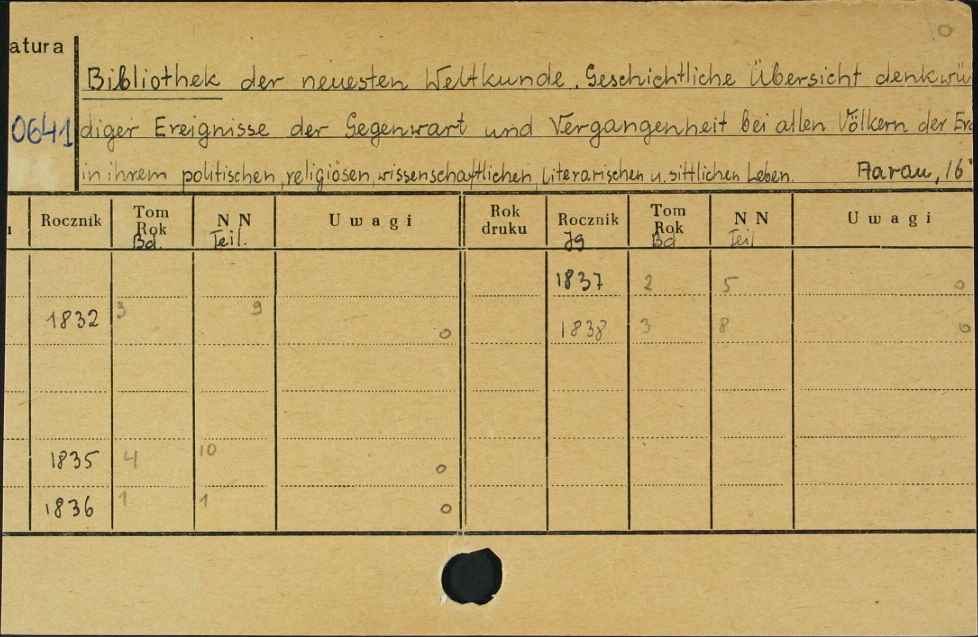 atura
Bibliothek der neuesten Weltkunde. Geschichtliche Übersicht denkwü
0641 diger Ereignisse der Gegenwart und Vergangenheit bei allen Völkern der Erd
in ihrem politischen, religiösen, wissenschaftlichen, literarischen u. sittlichen Leben. Aarau, 16
Rocznik Tom Rok Bd. NN Teil. Uwagi Rok druku Rocznik Jg Tom Rok Bd NN Teil Uwagi
1837 2 5 o
1832 3 9 o 1838 3 8 o
1835 4 10 o
1836 1 1 o